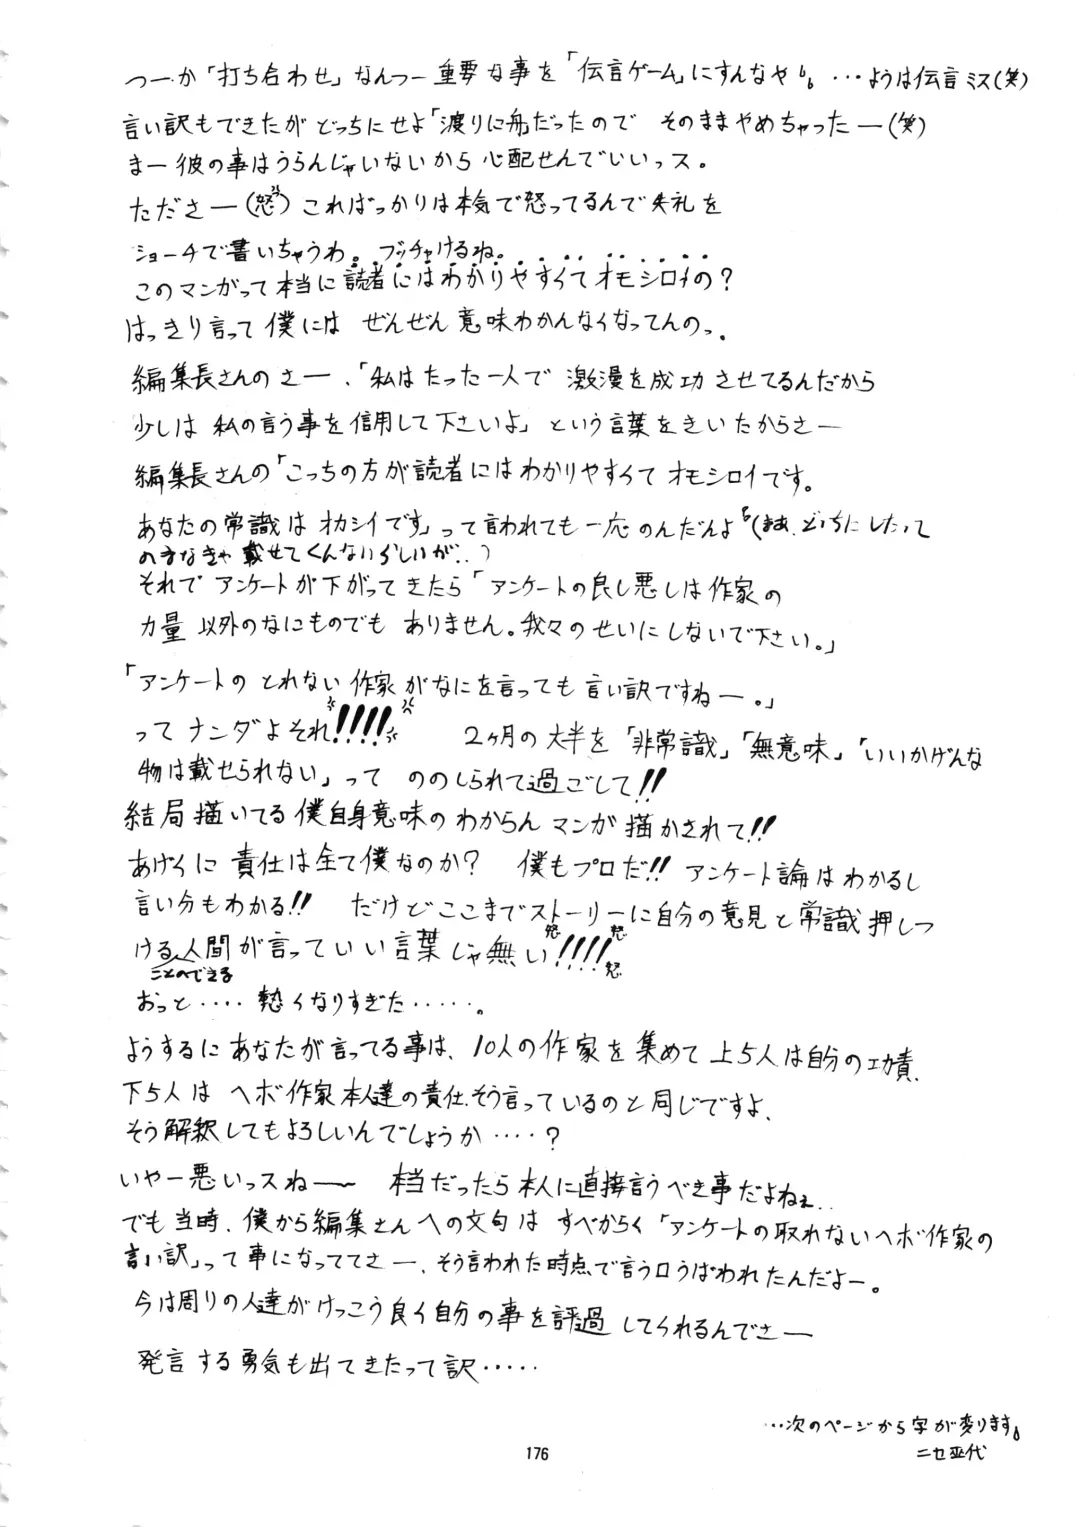 つーか「打ち合わせ」なんつー重要な事を「伝言ゲーム」にすんなや。…ようは伝言ミス(笑)
言い訳もできたがどっちにせよ「渡りに舟」だったので そのままやめちゃったー(笑)
まー彼の事はうらんじゃいないから心配せんでいいっス。
たださー(怒)こればっかりは本気で怒ってるんで失礼を
ショーチで書いちゃうわ。ブッチャけるね。
このマンガって本当に読者にはわかりやすくてオモシロイの?
はっきり言って僕には ぜんぜん意味わかんなくなってんのっ。
編集長さんのさー、「私はたった一人で 激漫を成功させてるんだから
少しは 私の言う事を信用して下さいよ」という言葉をきいたからさー
編集長さんの「こっちの方が読者にはわかりやすくてオモシロイです。
あなたの常識はオカシイです」って言われても一応のんだんよ(まぁ、どっちにしたって
のまなきゃ載せてくんないらしいが..)
それでアンケートが下がってきたら「アンケートの良し悪しは作家の
力量以外のなにものでも ありません。我々のせいにしないで下さい。」
「アンケートのとれない作家がなにを言っても言い訳ですねー。」
ってナンダよそれ!!!! 2ヶ月の大半を「非常識」「無意味」「いいかげんな
物は載せられない」って ののしられて過ごして!!
結局描いてる僕自身意味のわからんマンガ描かされて!!
あげくに責任は全て僕なのか? 僕もプロだ!! アンケート論はわかるし
言い分もわかる!! だけどここまでストーリーに自分の意見と常識押しつ
ける人間が言っていい言葉じゃ無い!!!!
ことのできる
おっと‥‥熱くなりすぎた‥‥‥。
ようするにあなたが言ってる事は、10人の作家を集めて上5人は自分の功績、
下5人は ヘボ作家本人達の責任、そう言っているのと同じですよ、
そう解釈してもよろしいんでしょうか‥‥?
いやー悪いっスね〜 本当だったら本人に直接言うべき事だよねぇ..
でも当時、僕から編集さんへの文句は すべからく「アンケートの取れないヘボ作家の
言い訳」って事になっててさー、そう言われた時点で言う口うばわれたんだよー。
今は周りの人達がけっこう良く自分の事を評過してくれるんでさー
発言する勇気も出てきたって訳‥‥‥
…次のページから字が変ります。
ニセ亜代
176